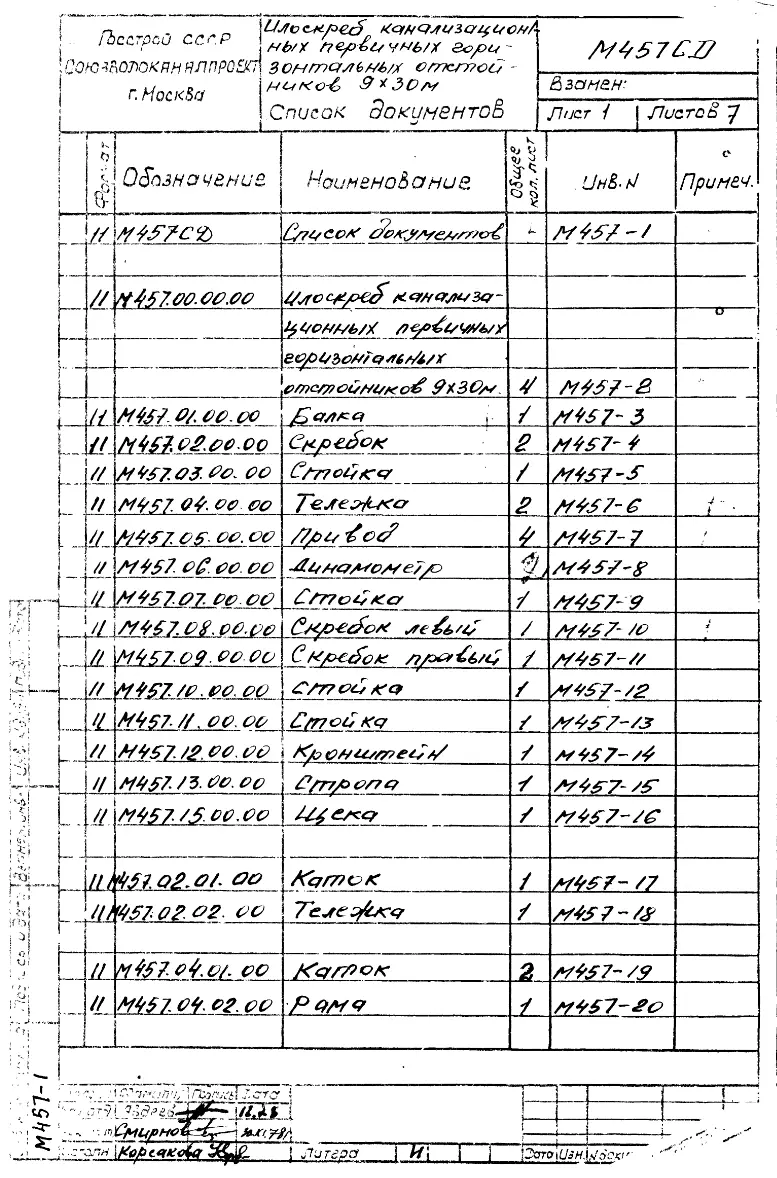 Госстрой СССР
СОЮЗВОДОКАНАЛПРОЕКТ
г. Москва
Илоскреб канализацион-
ных первичных гори-
зонтальных отстой-
ников 9×30м
Список документов
М457СД
Взамен:
Лист 1 Листов 7
Формат Обозначение Наименование Общее кол. лист Инв. N Примеч.
11 М457СД Список документов - М457-1
11 М457.00.00.00 Илоскреб канализа-
ционных первичных
горизонтальных
отстойников 9×30м. 4 М457-2
11 М457.01.00.00 Балка 1 М457-3
11 М457.02.00.00 Скребок 2 М457-4
11 М457.03.00.00 Стойка 1 М457-5
11 М457.04.00.00 Тележка 2 М457-6
11 М457.05.00.00 Привод 4 М457-7
11 М457.06.00.00 Динамометр М457-8
11 М457.07.00.00 Стойка 1 М457-9
11 М457.08.00.00 Скребок левый 1 М457-10
11 М457.09.00.00 Скребок правый 1 М457-11
11 М457.10.00.00 Стойка 1 М457-12
11 М457.11.00.00 Стойка 1 М457-13
11 М457.12.00.00 Кронштейн 1 М457-14
11 М457.13.00.00 Стропа 1 М457-15
11 М457.15.00.00 Щека 1 М457-16
11 М457.02.01.00 Каток 1 М457-17
11 М457.02.02.00 Тележка 1 М457-18
11 М457.04.01.00 Каток 2 М457-19
11 М457.04.02.00 Рама 1 М457-20
М457-1
Дата
Смирнов
Корсакова
Литера И
Дата Изм.